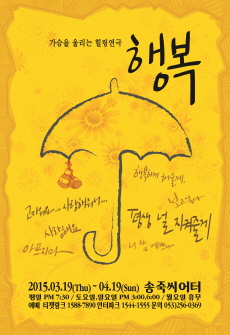 가슴을 울리는 힐링연극
행복
행복하게 해줄게.
고마워... 사랑해줘서...
사랑해요
아프지마
평생 널 지켜줄게
너 참 예쁘다
2015.03.19(Thu) ~ 04.19(Sun) 송죽씨어터
평일 PM 7:30 / 토요일,일요일 PM 3:00,6:00 / 월요일 휴무
예매 티켓링크 1588-7890 인터파크 1544-1555 문의 053)256-0369